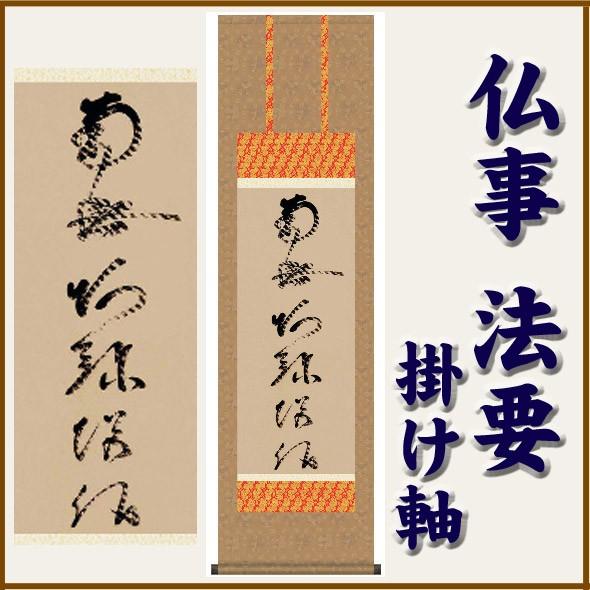 仏事 法要
掛け軸
南無阿弥陀佛
南無阿弥陀佛